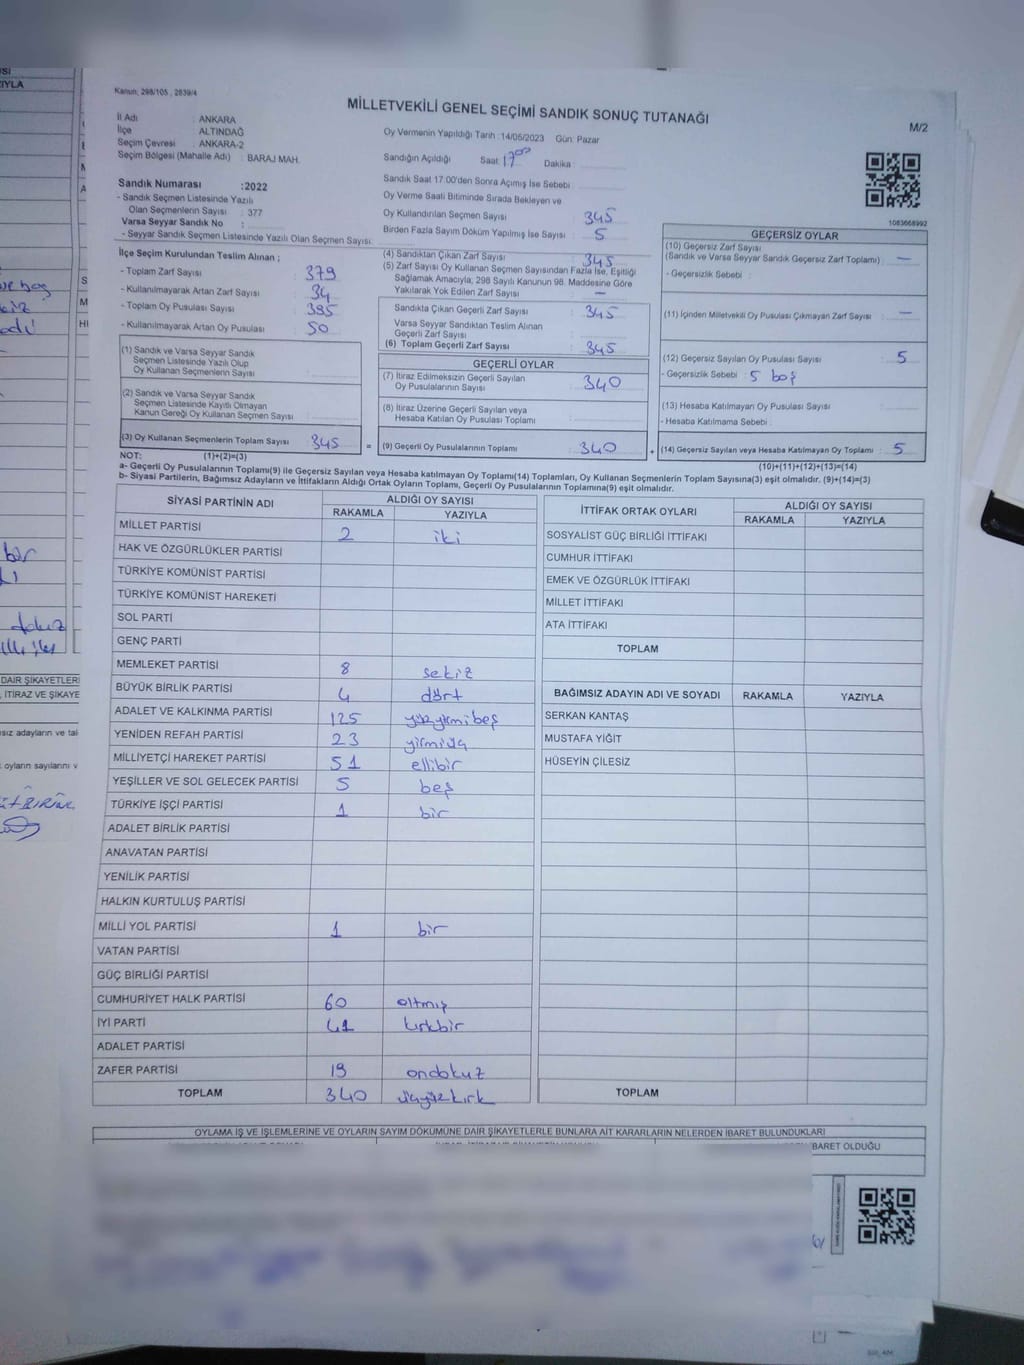 Kanun: 298/105 , 2839/4
MİLLETVEKİLİ GENEL SEÇİMİ SANDIK SONUÇ TUTANAĞI
M/2
İl Adı : ANKARA
İlçe : ALTINDAĞ
Seçim Çevresi : ANKARA-2
Seçim Bölgesi (Mahalle Adı) : BARAJ MAH.
Oy Vermenin Yapıldığı Tarih : 14/05/2023 Gün: Pazar
Sandığın Açıldığı Saat: 17⁰⁰ Dakika :
Sandık Saat 17:00'den Sonra Açımış İse Sebebi :
Oy Verme Saati Bitiminde Sırada Bekleyen ve
Oy Kullandırılan Seçmen Sayısı : 345
Birden Fazla Sayım Döküm Yapılmış İse Sayısı : 5
Sandık Numarası :2022
- Sandık Seçmen Listesinde Yazılı
Olan Seçmenlerin Sayısı : 377
Varsa Seyyar Sandık No :
- Seyyar Sandık Seçmen Listesinde Yazılı Olan Seçmen Sayısı:
1083668992
İlçe Seçim Kurulundan Teslim Alınan ;
- Toplam Zarf Sayısı : 379
- Kullanılmayarak Artan Zarf Sayısı : 34
- Toplam Oy Pusulası Sayısı : 395
- Kullanılmayarak Artan Oy Pusulası : 50
(1) Sandık ve Varsa Seyyar Sandık
Seçmen Listesinde Yazılı Olup
Oy Kullanan Seçmenlerin Sayısı :
(2) Sandık ve Varsa Seyyar Sandık
Seçmen Listesinde Kayıtlı Olmayan
Kanun Gereği Oy Kullanan Seçmen Sayısı :
(3) Oy Kullanan Seçmenlerin Toplam Sayısı : 345 =
(4) Sandıktan Çıkan Zarf Sayısı : 345
(5) Zarf Sayısı Oy Kullanan Seçmen Sayısından Fazla İse, Eşitliği
Sağlamak Amacıyla; 298 Sayılı Kanunun 98. Maddesine Göre
Yakılarak Yok Edilen Zarf Sayısı : —
Sandıkta Çıkan Geçerli Zarf Sayısı : 345
Varsa Seyyar Sandıktan Teslim Alınan
Geçerli Zarf Sayısı :
(6) Toplam Geçerli Zarf Sayısı : 345
GEÇERLİ OYLAR
(7) İtiraz Edilmeksizin Geçerli Sayılan
Oy Pusulalarının Sayısı : 340
(8) İtiraz Üzerine Geçerli Sayılan veya
Hesaba Katılan Oy Pusulası Toplamı :
(9) Geçerli Oy Pusulalarının Toplamı : 340 +
GEÇERSİZ OYLAR
(10) Geçersiz Zarf Sayısı
(Sandık ve Varsa Seyyar Sandık Geçersiz Zarf Toplamı) : —
- Geçersizlik Sebebi :
(11) İçinden Milletvekili Oy Pusulası Çıkmayan Zarf Sayısı : —
(12) Geçersiz Sayılan Oy Pusulası Sayısı : 5
- Geçersizlik Sebebi : 5 boş
(13) Hesaba Katılmayan Oy Pusulası Sayısı :
- Hesaba Katılmama Sebebi :
(14) Geçersiz Sayılan veya Hesaba Katılmayan Oy Toplamı : 5
NOT: (1)+(2)=(3)
(10)+(11)+(12)+(13)=(14)
a- Geçerli Oy Pusulalarının Toplamı(9) ile Geçersiz Sayılan veya Hesaba katılmayan Oy Toplamı(14) Toplamları, Oy Kullanan Seçmenlerin Toplam Sayısına(3) eşit olmalıdır. (9)+(14)=(3)
b- Siyasi Partilerin, Bağımsız Adayların ve İttifakların Aldığı Ortak Oyların Toplamı, Geçerli Oy Pusulalarının Toplamına(9) eşit olmalıdır.
SİYASİ PARTİNİN ADI ALDIĞI OY SAYISI
RAKAMLA YAZIYLA
MİLLET PARTİSİ 2 iki
HAK VE ÖZGÜRLÜKLER PARTİSİ
TÜRKİYE KOMÜNİST PARTİSİ
TÜRKİYE KOMÜNİST HAREKETİ
SOL PARTİ
GENÇ PARTİ
MEMLEKET PARTİSİ 8 sekiz
BÜYÜK BİRLİK PARTİSİ 4 dört
ADALET VE KALKINMA PARTİSİ 125 yüzyirmibeş
YENİDEN REFAH PARTİSİ 23 yirmiüç
MİLLİYETÇİ HAREKET PARTİSİ 51 ellibir
YEŞİLLER VE SOL GELECEK PARTİSİ 5 beş
TÜRKİYE İŞÇİ PARTİSİ 1 bir
ADALET BİRLİK PARTİSİ
ANAVATAN PARTİSİ
YENİLİK PARTİSİ
HALKIN KURTULUŞ PARTİSİ
MİLLİ YOL PARTİSİ 1 bir
VATAN PARTİSİ
GÜÇ BİRLİĞİ PARTİSİ
CUMHURİYET HALK PARTİSİ 60 altmış
İYİ PARTİ 41 kırkbir
ADALET PARTİSİ
ZAFER PARTİSİ 19 ondokuz
TOPLAM 340 üçyüzkırk
İTTİFAK ORTAK OYLARI ALDIĞI OY SAYISI
RAKAMLA YAZIYLA
SOSYALİST GÜÇ BİRLİĞİ İTTİFAKI
CUMHUR İTTİFAKI
EMEK VE ÖZGÜRLÜK İTTİFAKI
MİLLET İTTİFAKI
ATA İTTİFAKI
TOPLAM
BAĞIMSIZ ADAYIN ADI VE SOYADI RAKAMLA YAZIYLA
SERKAN KANTAŞ
MUSTAFA YİĞİT
HÜSEYİN ÇİLESİZ
TOPLAM
OYLAMA İŞ VE İŞLEMLERİNE VE OYLARIN SAYIM DÖKÜMÜNE DAİR ŞİKAYETLERLE BUNLARA AİT KARARLARIN NELERDEN İBARET BULUNDUKLARI
BARET OLDUĞU
YLA
bir
dokuz
DAİR ŞİKAYETLER
, İTİRAZ VE ŞİKAYE
sız adayların ve
oyların sayılarını v